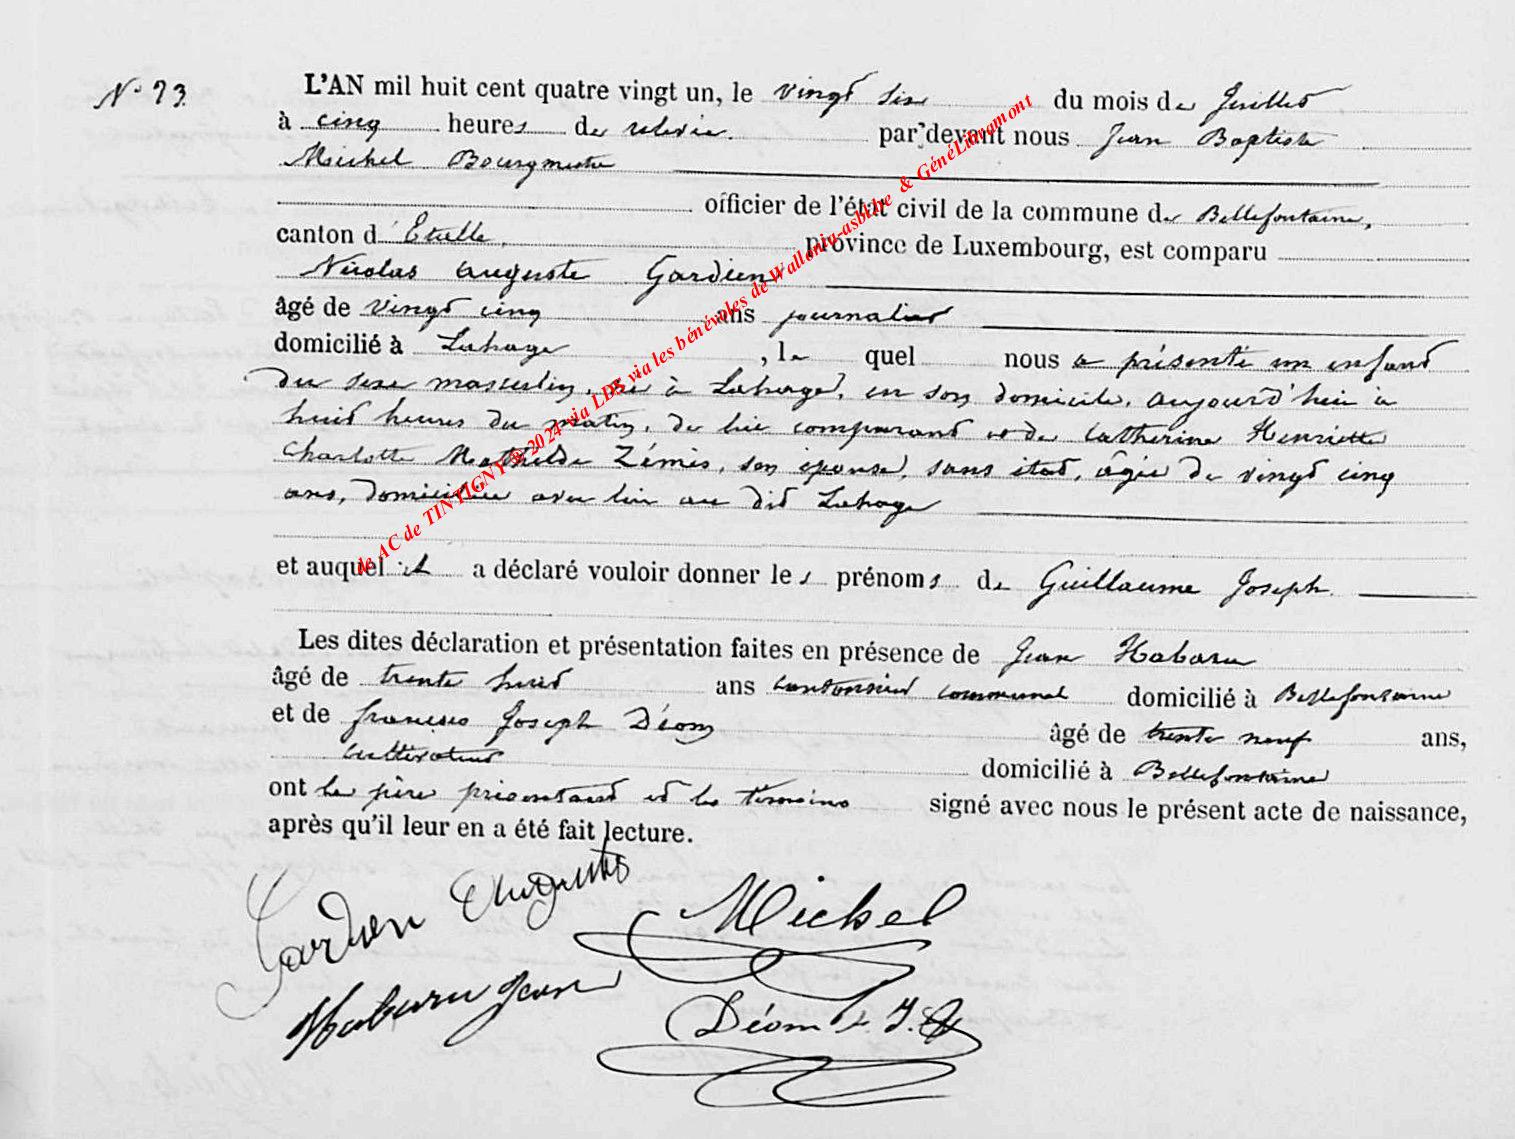 N° 23.
L'AN mil huit cent quatre vingt un, le vingt six du mois de Juillet
à cinq heures de relevée. par devant nous Jean Baptiste
Michel Bourgmestre
officier de l'état civil de la commune de Bellefontaine,
canton d'Etalle, province de Luxembourg, est comparu
Nicolas Auguste Gardien
âgé de vingt cinq ans journalier
domicilié à Lahage, le quel nous a présenté un enfant
du sexe masculin, né à Lahage, en son domicile, aujourd'hui à
huit heures du matin, de lui comparant et de Catherine Henriette
Charlotte Mathilde Zémis, son épouse, sans état, âgée de vingt cinq
ans, domiciliée avec lui au dit Lahage
et auquel il a déclaré vouloir donner les prénoms de Guillaume Joseph.
Les dites déclaration et présentation faites en présence de Jean Habaru
âgé de trente huit ans cantonnier communal domicilié à Bellefontaine
et de François Joseph Déom âgé de trente neuf ans,
cultivateur domicilié à Bellefontaine
ont le père présentant et les témoins signé avec nous le présent acte de naissance,
après qu'il leur en a été fait lecture.
Gardien Auguste
Michel
Habaru Jean
Déom F. J.
de AC de TINTIGNY @ 2024 via LDS via les bénévoles de Wallonia-asbtbe & GénéLibramont